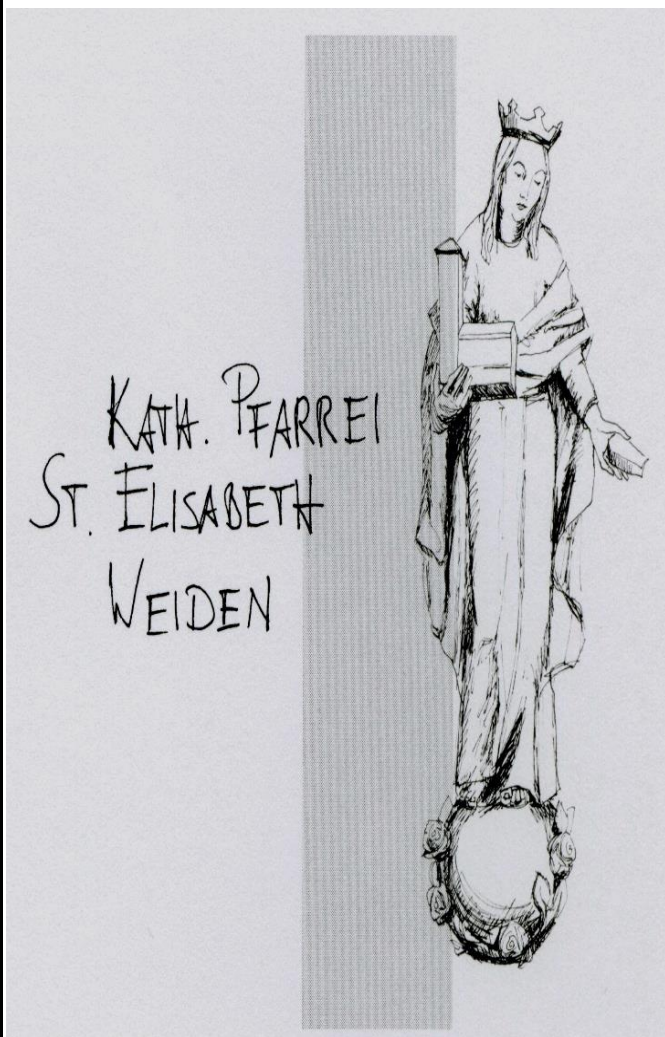 KATH. PFARREI
ST. ELISABETH
WEIDEN